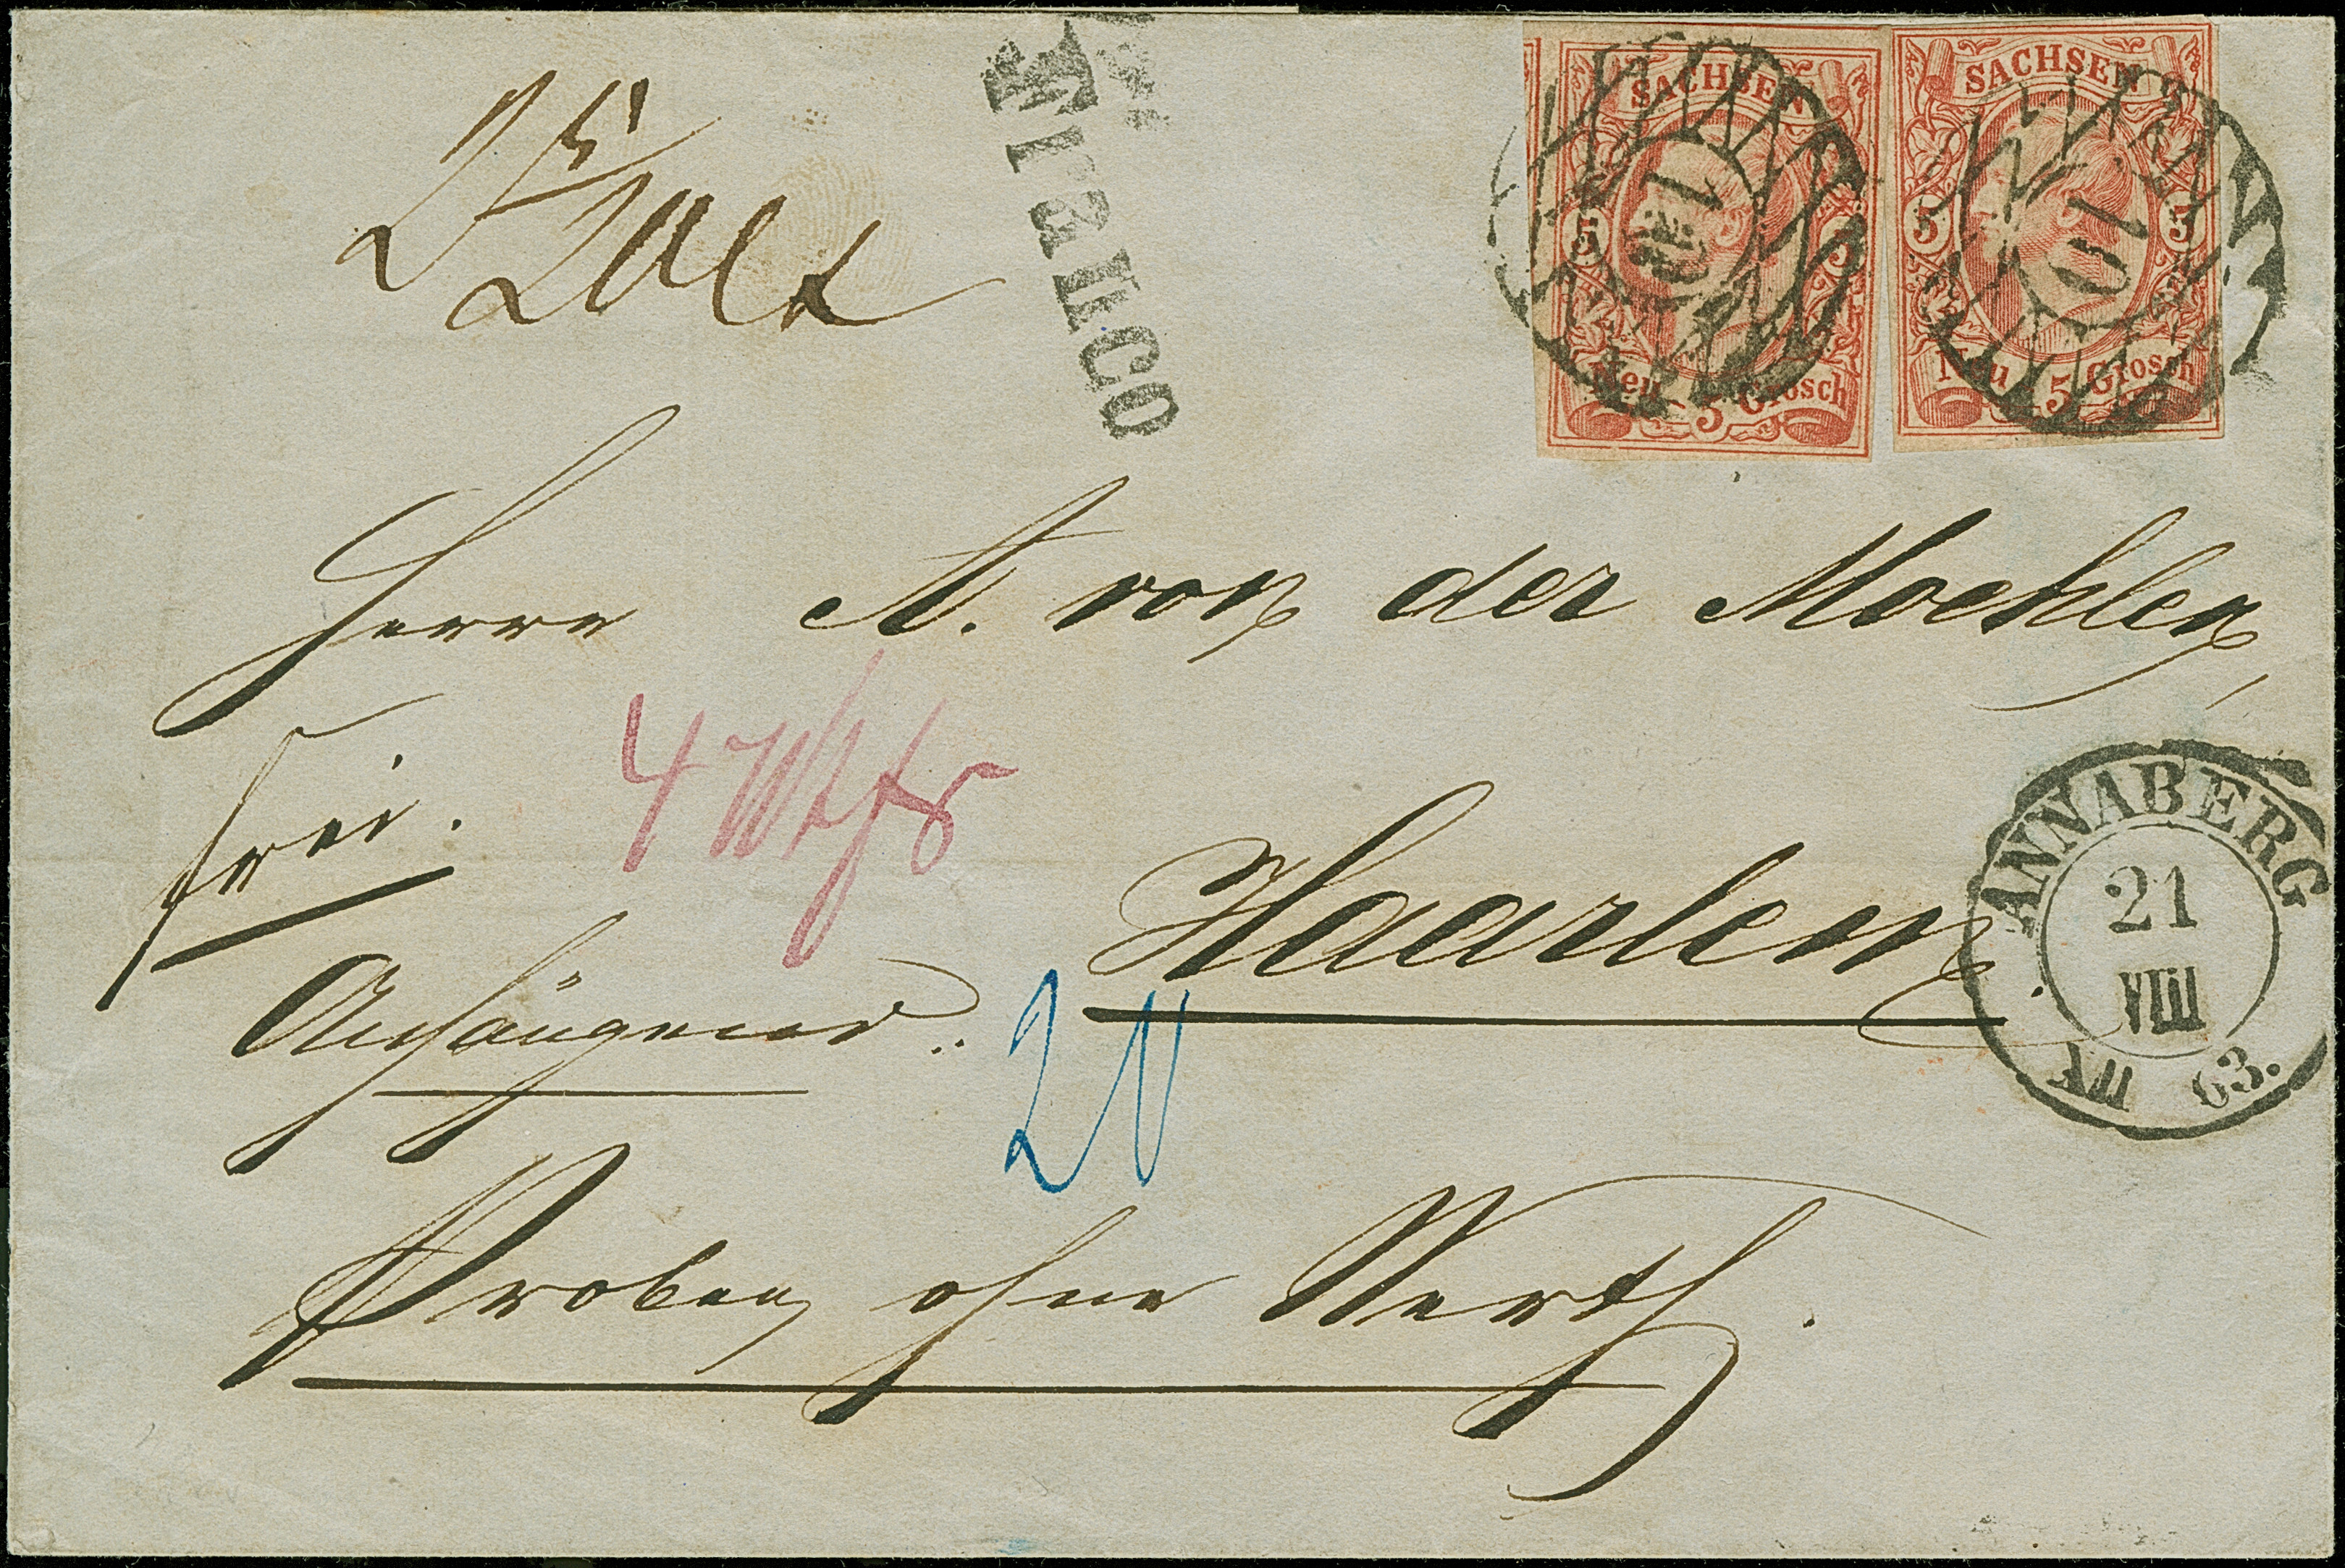 Franco
SACHSEN
5 5
10
Neu 5 Grosch
SACHSEN
5 5
10
Neu 5 Grosch
Herrn A. von der Moehlen,
frei.
4 Wfr
Haarlem.
ANNABERG
21
VIII
63.
Anhängend:
20
Proben ohne Werth.